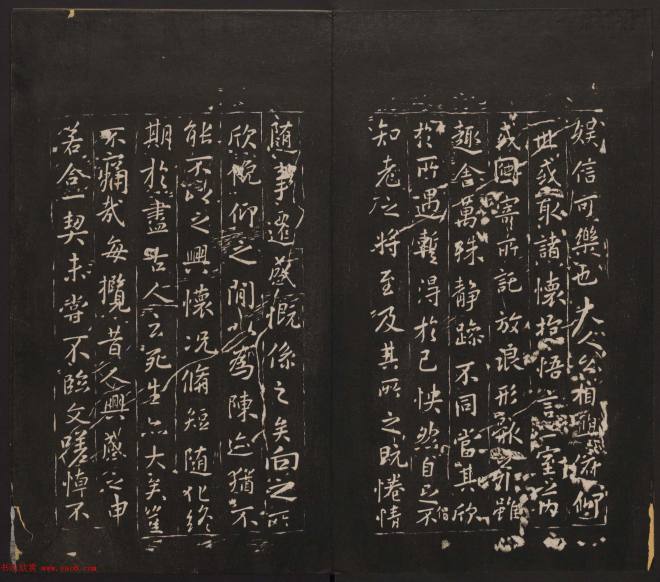 娱信可樂也夫人之相與俯仰
一世或取諸懷抱悟言一室之內
或因寄所託放浪形骸之外雖
趣舍萬殊静躁不同當其欣
於所遇暫得於己怏然自足不
知老之將至及其所之既惓情
隨事遷感慨係之矣向之所
欣俛仰之閒以為陳迹猶不
能不以之興懷况脩短随化終
期於盡古人云死生亦大矣豈
不痛哉每攬昔人興感之由
若合一契未嘗不臨文嗟悼不
书法欣赏 www.yac8.com